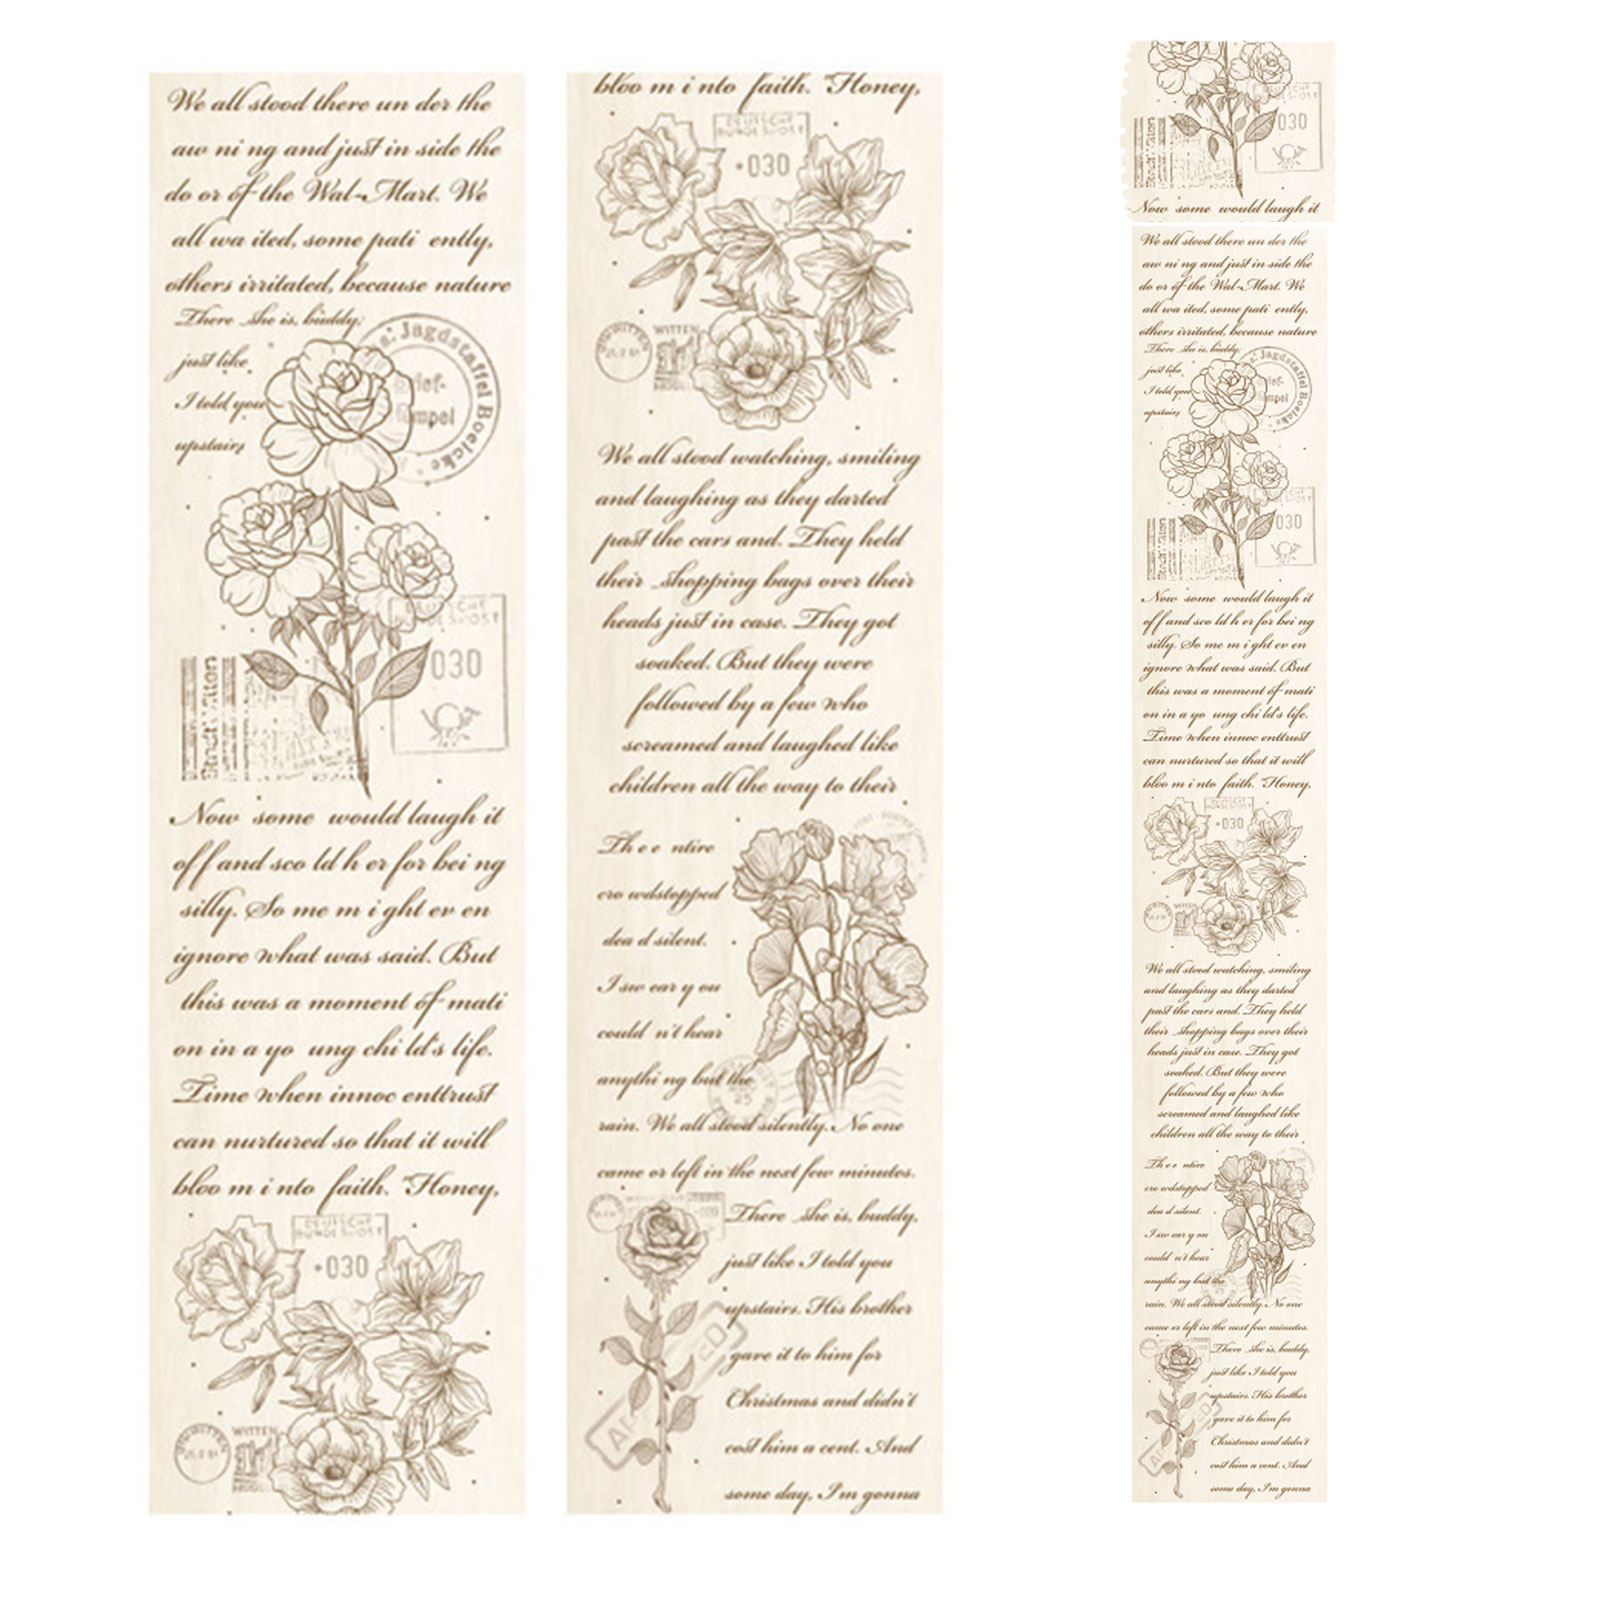 We all stood there un der the
aw ni ng and just in side the
do or of the Wal-Mart. We
all wa ited, some pati ently,
others irritated, because nature
There she is, buddy;
just like
I told you
upstairs
Jagdstaffel Boelcke
DEUTSCHE
BUNDESPOST
030
Now some would laugh it
off and sco ld h er for bei ng
silly. So me m i ght ev en
ignore what was said. But
this was a moment of mati
on in a yo ung chi ld's life.
Time when innoc enttrust
can nurtured so that it will
bloo m i nto faith. "Honey,
DEUTSCHE
BUNDESPOST
030
WITTEN
bloo m i nto faith. "Honey,
DEUTSCHE
BUNDESPOST
030
WITTEN
We all stood watching, smiling
and laughing as they darted
past the cars and. They held
their shopping bags over their
heads just in case. They got
soaked. But they were
followed by a few who
screamed and laughed like
children all the way to their
Th e e ntire
cro wdstopped
dea d silent.
I sw ear y ou
could n't hear
anythi ng but the
rain. We all stood silently. No one
came or left in the next few minutes.
There she is, buddy,
just like I told you
upstairs. His brother
gave it to him for
Christmas and didn't
cost him a cent. And
some day, I'm gonna
030
Now some would laugh it
We all stood there un der the
aw ni ng and just in side the
do or of the Wal-Mart. We
all wa ited, some pati ently,
others irritated, because nature
There she is, buddy;
just like
I told you
upstairs
Jagdstaffel Boelcke
030
Now some would laugh it
off and sco ld h er for bei ng
silly. So me m i ght ev en
ignore what was said. But
this was a moment of mati
on in a yo ung chi ld's life.
Time when innoc enttrust
can nurtured so that it will
bloo m i nto faith. "Honey,
DEUTSCHE
030
We all stood watching, smiling
and laughing as they darted
past the cars and. They held
their shopping bags over their
heads just in case. They got
soaked. But they were
followed by a few who
screamed and laughed like
children all the way to their
Th e e ntire
cro wdstopped
dea d silent.
I sw ear y ou
could n't hear
anythi ng but the
rain. We all stood silently. No one
came or left in the next few minutes.
There she is, buddy,
just like I told you
upstairs. His brother
gave it to him for
Christmas and didn't
cost him a cent. And
some day, I'm gonna